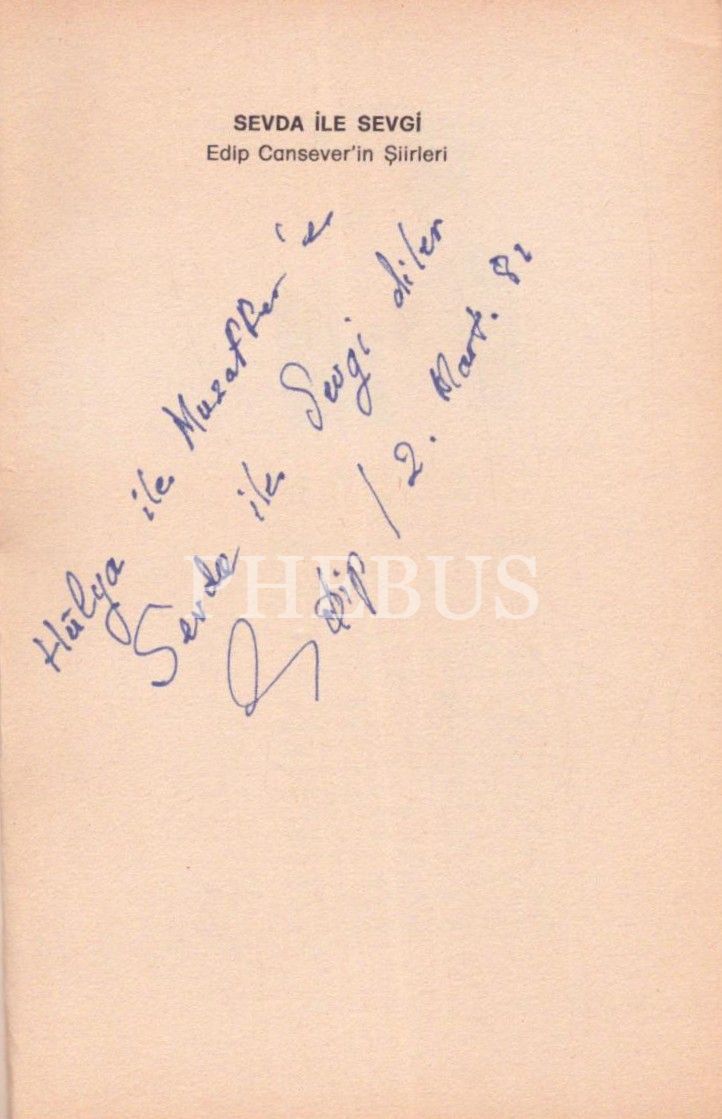 SEVDA İLE SEVGİ
Edip Cansever'in Şiirleri
Hülya ile Muzaffer'e
Sevda ile Sevgi diler
Edip / 2. Mart. 82
PHEBUS